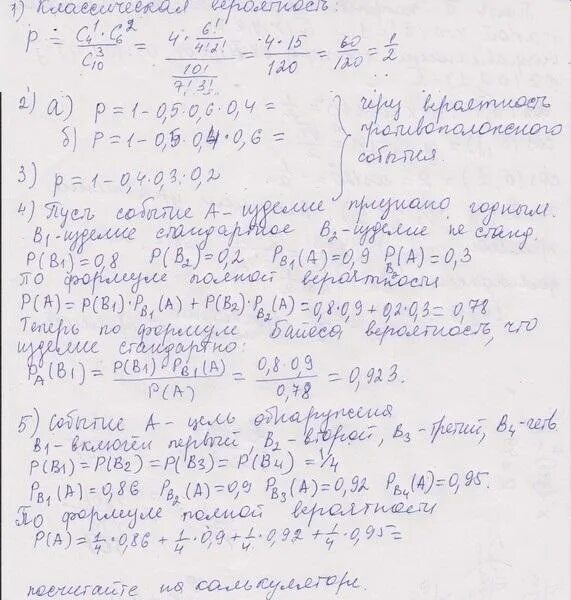 1) Классическая вероятность:
P = C₄¹·C₆² / C₁₀³ = 4·6!/(4!2!) / 10!/(7!3!) = 4·15/120 = 60/120 = 1/2
2) а) P = 1-0,5·0,6·0,4 =
б) P = 1-0,5·0,4·0,6 =
через вероятность
противоположного
события.
3) P = 1-0,4·0,3·0,2
4) Пусть событие А – изделие признано годным.
B₁-изделие стандартное B₂-изделие не станд.
P(B₁)=0,8 P(B₂)=0,2 P_B₁(A)=0,9 P_B₂(A)=0,3
По формуле полной вероятности
P(A)=P(B₁)·P_B₁(A)+P(B₂)·P_B₂(A)=0,8·0,9+0,2·0,3=0,78
Теперь по формуле Байеса вероятность, что
изделие стандартно:
P_A(B₁) = P(B₁)·P_B₁(A) / P(A) = 0,8·0,9 / 0,78 = 0,923.
5) Событие А – цель обнаружена
B₁-включён первый, B₂-второй, B₃-третий, B₄-четв.
P(B₁)=P(B₂)=P(B₃)=P(B₄)=1/4
P_B₁(A)=0,86 P_B₂(A)=0,9 P_B₃(A)=0,92 P_B₄(A)=0,95.
По формуле полной вероятности
P(A)=1/4·0,86+1/4·0,9+1/4·0,92+1/4·0,95=
посчитайте на калькуляторе.